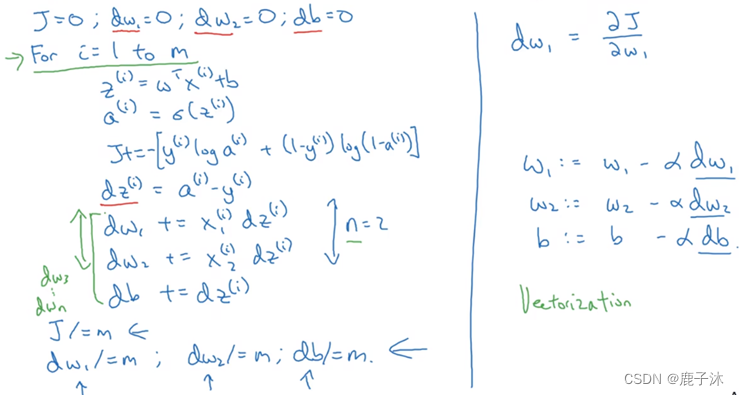 J=0 ; dw₁=0 ; dw₂=0 ; db=0
→ For i=1 to m
z⁽ⁱ⁾=wᵀx⁽ⁱ⁾+b
a⁽ⁱ⁾=σ(z⁽ⁱ⁾)
J+=-[y⁽ⁱ⁾ log a⁽ⁱ⁾ + (1-y⁽ⁱ⁾) log(1-a⁽ⁱ⁾)]
dz⁽ⁱ⁾ = a⁽ⁱ⁾-y⁽ⁱ⁾
dw₁ += x₁⁽ⁱ⁾ dz⁽ⁱ⁾
dw₂ += x₂⁽ⁱ⁾ dz⁽ⁱ⁾
db += dz⁽ⁱ⁾
n=2
dw₃
⋮
dwₙ
J/=m ←
dw₁/=m ; dw₂/=m ; db/=m. ←
dw₁ = ∂J/∂w₁
w₁ := w₁ - α dw₁
w₂ := w₂ - α dw₂
b := b - α db.
Vectorization
CSDN @鹿子沐